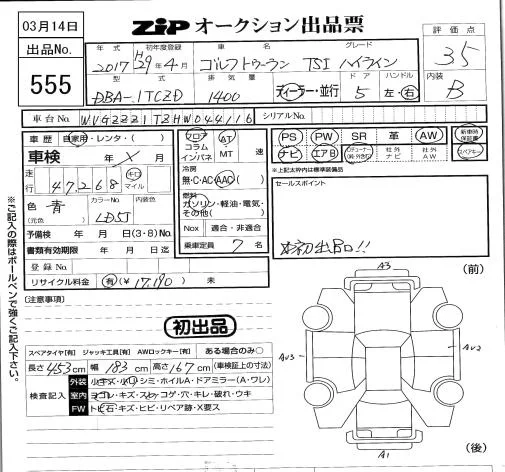 03月14日
ZiP オークション出品票
評価点
出品No.
555
年式 初年度登録 車名 グレード
2017 H29年4月 ゴルフトゥーラン TSI ハイライン
35
型式 排気量 ドア ハンドル
DBA-1TCZD 1400 ディーラー・並行 5 左・右
内装
B
車台No. WVGZZZ1TZHW044116 シリアルNo.
車歴 自家用・レンタ・( )
車検 年 X 月
走行 47,268 キロ マイル
色 青 (元色) カラーNo. LD5J 内装色
予備検 年 月 日(3・8)No.
書類有効期限 年 月 日迄
登録No.
リサイクル料金 有(¥17,190) 未
フロア コラム インパネ
AT MT 速
冷房
無・C・AC(AAC)
燃料
ガソリン・軽油・電気・その他( )
Nox 適合・非適合
乗車定員 7 名
PS PW SR 革 AW
ナビ エアB
社外ナビ 社外AW
新車時保証書
スペアキー
※上記太枠内は標準装備品
セールスポイント
本初出品!!
※ご記入の際はボールペンで強くご記入下さい。
(注意事項)
初出品
スペアタイヤ[有] ジャッキ工具[有] AWロックキー[有] ある場合のみ○
長さ453cm 幅183cm 高さ167cm (車検証上の寸法)
検査記入
外装 小キズ・小凹・シミ・ホイルA・ドアミラー(A・ワレ)
室内 ヨゴレ・キズ・スレ・コゲ・穴・キレ・破れ・ウキ
FW トビ石・キズ・ヒビ・リペア跡・X要ス
(前)
A3
AU3
AU2
A1
(後)